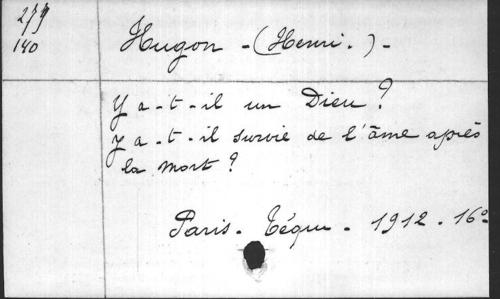 279
140
Hugon - (Henri.) -
Y a-t-il un Dieu ?
Y a-t-il survie de l'âme après
la mort ?
Paris. Téqui - 1912 - 16°